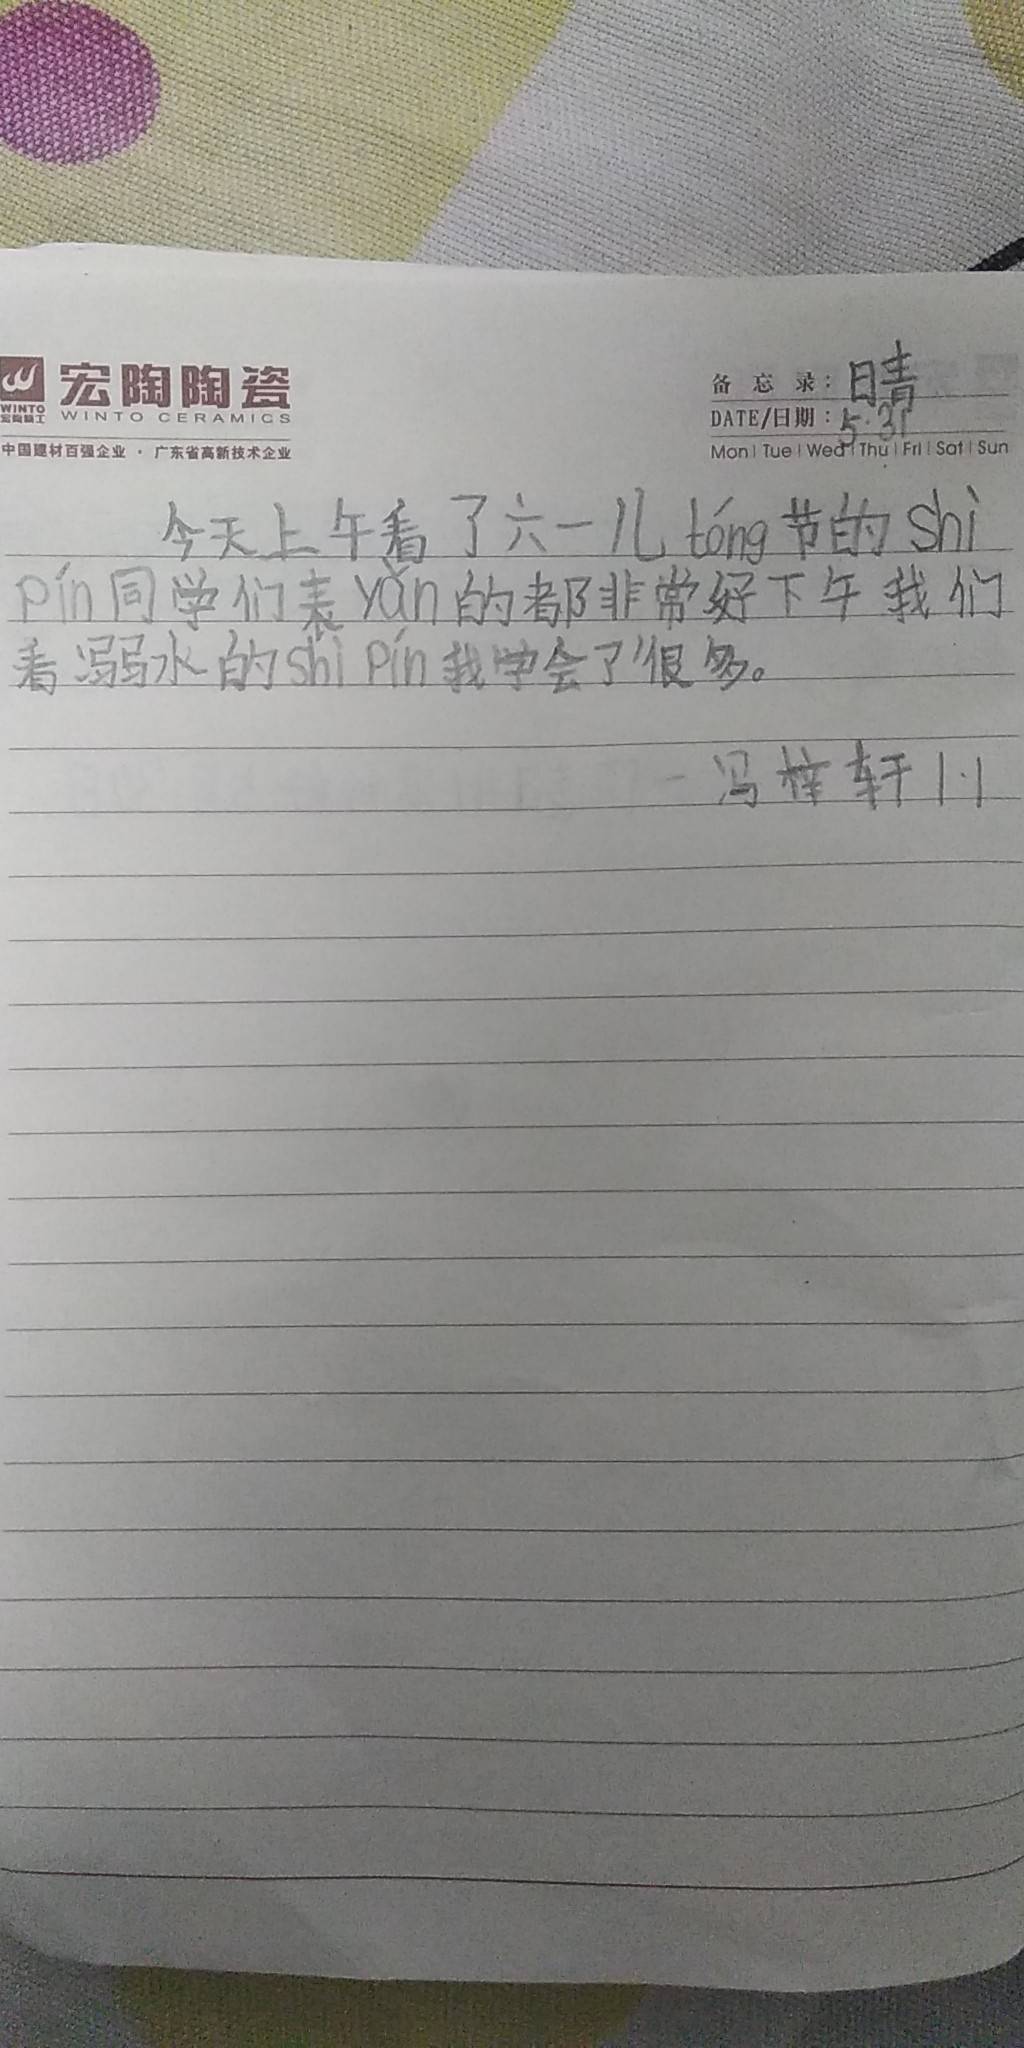 宏陶陶瓷
WINTO CERAMICS
WINTO
中国建材百强企业 · 广东省高新技术企业
备 忘 录: 晴
DATE/日期: 5.31
Mon | Tue | Wed | Thu | Fri | Sat | Sun
今天上午看了六一儿tóng节的shì
pín同学们表yǎn的都非常好下午我们
看溺水的shì pín我学会了很多。
冯梓轩 1.1